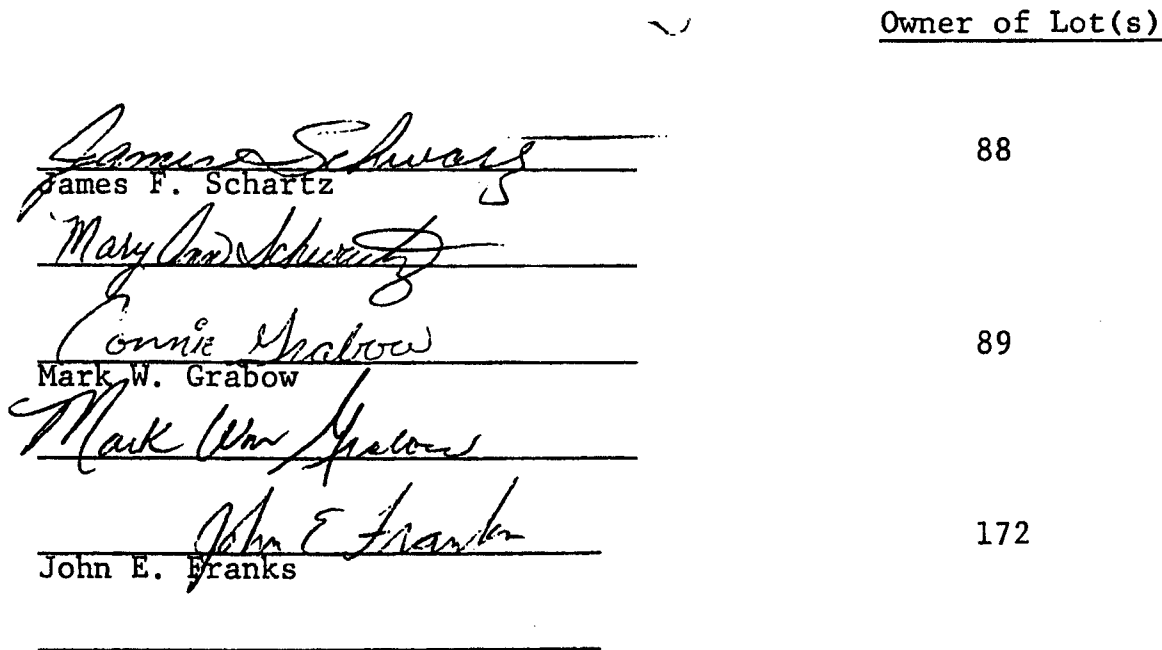 Owner of Lot(s)
James Schwarz 88
James F. Schartz
Mary Ann Schwartz
Connie Grabow 89
Mark W. Grabow
Mark Wm Grabow
John E Franks 172
John E. Franks